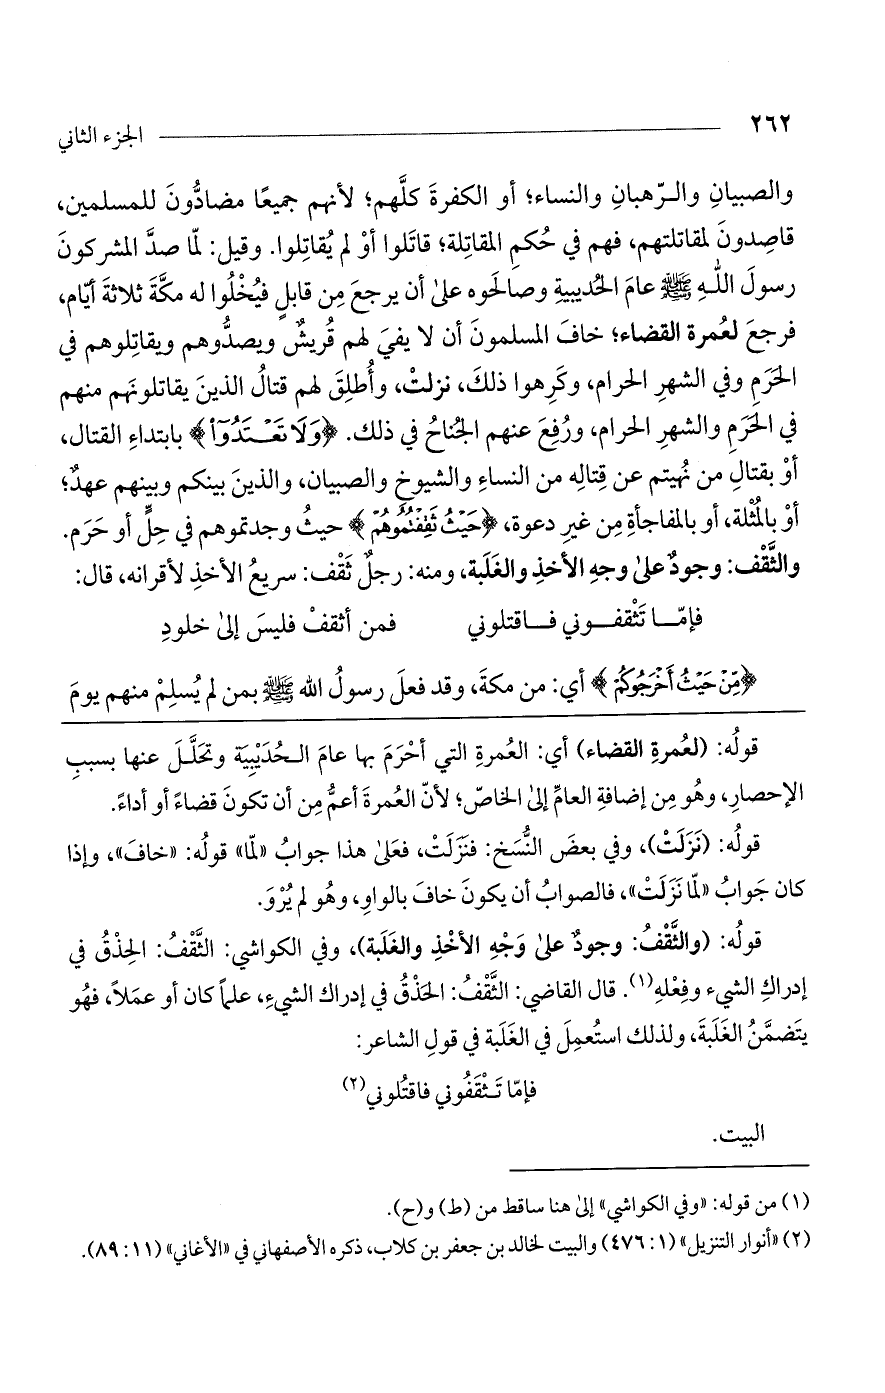 ٢٦٢ الجزء الثاني
والصبيانِ والـرّهبانِ والنساء؛ أو الكفرةَ كلَّهم؛ لأنهم جميعًا مضادُّونَ للمسلمين،
قاصِدونَ لمقاتلتهم، فهم في حُكمِ المقاتِلة؛ قاتَلوا أوْ لم يُقاتِلوا. وقيل: لمّا صدَّ المشركونَ
رسولَ اللَّـهِ ﷺ عامَ الحُديبيةِ وصالَحوه علىٰ أن يرجعَ مِن قابلٍ فيُخْلُوا له مكَّةَ ثلاثةَ أيّام،
فرجعَ لعُمرة القضاء؛ خافَ المسلمونَ أن لا يفيَ لهم قُريشٌ ويصدُّوهم ويقاتِلوهم في
الحَرَمِ وفي الشهرِ الحرام، وكَرِهوا ذلكَ، نزلتْ، وأُطلِقَ لهم قتالُ الذينَ يقاتلونَهم منهم
في الحَرَمِ والشهرِ الحرام، ورُفِعَ عنهم الجُناحُ في ذلك. ﴿وَلَا تَعْـتَدُوٓا۟﴾ بابتداءِ القتال،
أوْ بقتالِ من نُهيتم عن قِتالِه من النساءِ والشيوخِ والصبيان، والذينَ بينكم وبينهم عهدٌ؛
أوْ بالمُثْلة، أو بالمفاجأةِ مِن غيرِ دعوة، ﴿حَيْثُ ثَقِفْتُمُوهُمْ﴾ حيثُ وجدتموهم في حِلٍّ أو حَرَم.
والثَّقْف: وجودٌ علىٰ وجهِ الأخذِ والغَلَبة، ومنه: رجلٌ ثَقْف: سريعُ الأخذِ لأقرانه، قال:
فإمّـــا تَثْقفـــوني فــاقتلوني فمن أثقفْ فليسَ إلىٰ خلودِ
﴿مِّنْ حَيْثُ أَخْرَجُوكُمْ﴾ أي: من مكةَ، وقد فعلَ رسولُ الله ﷺ بمن لم يُسلِمْ منهم يومَ
قولُه: (لعُمرةِ القضاء) أي: العُمرةِ التي أحْرَمَ بها عامَ الـحُدَيْبِيَة وتحَلَّـلَ عنها بسببِ
الإحصارِ، وهُو مِن إضافةِ العامِّ إلىٰ الخاصّ؛ لأنّ العُمرةَ أعمُّ مِن أن تكونَ قضاءً أو أداءً.
قولُه: (نَزَلَتْ)، وفي بعضَ النُّسَخ: فنَزَلَتْ، فعَلىٰ هذا جوابُ «لمّا» قولُه: «خافَ»، وإذا
كان جَوابُ «لمّا نَزَلَتْ»، فالصوابُ أن يكونَ خافَ بالواوِ، وهُو لم يُرْوَ.
قولُه: (والثَّقْفُ: وجودٌ علىٰ وَجْهِ الأخْذِ والغَلَبة)، وفي الكواشي: الثَّقْفُ: الحِذْقُ في
إدراكِ الشيء وفِعْلهِ(١). قال القاضي: الثَّقْفُ: الحَذْقُ في إدراك الشيءِ، علماً كان أو عمَلاً، فهُو
يتَضمَّنُ الغَلَبةَ، ولذلك استُعمِلَ في الغَلَبة في قولِ الشاعر:
فإمّا تَـثْقَفُوني فاقتُلوني(٢)
البيت.
(١) من قوله: «وفي الكواشي» إلىٰ هنا ساقط من (ط) و(ح).
(٢) «أنوار التنزيل» (١: ٤٧٦) والبيت لخالد بن جعفر بن كلاب، ذكره الأصفهاني في «الأغاني» (١١: ٨٩).